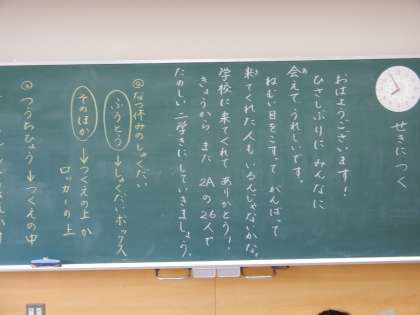 せきにつく
おはようございます!
ひさしぶりに みんなに
会えてうれしいです。
ねむい日をこすって がんばって
来てくれた人も いるんじゃないかな。
学校に来てくれて ありがとう!
きょうから また 2Aの26人で
たのしい 二学きにしていきましょう。
◎なつ休みのしゅくだい
ふうとう→しゅくだいボックス
そのほか→つくえの上か
ロッカーの上
◎つうちひょう→つくえの中